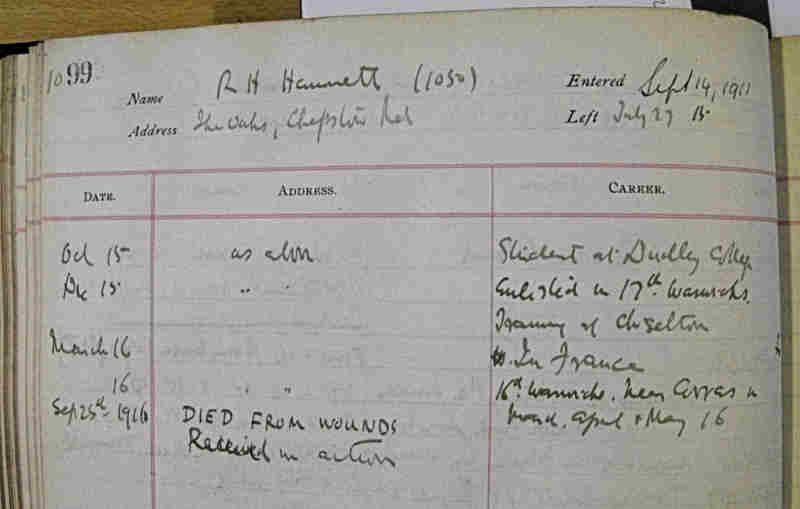 1099
Name R H Hamnett (1050) Entered Sept 14, 1911
Address The Oaks, Chepstow Rd Left July 27 15
DATE. ADDRESS. CAREER.
Oct 15 as above Student at Dudley College
Dec 15 " " Enlisted in 17th Warwicks.
Training at Chiseldon
March 16 In France
16 " " 16th Warwicks. Near Arras in
Sep 25th 1916 DIED FROM WOUNDS March, April & May 16
Received in action